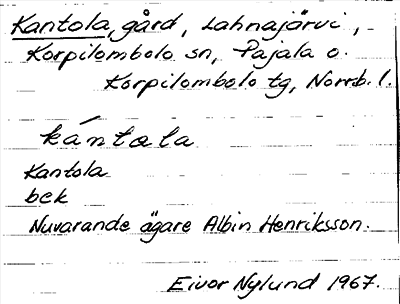 Kantola, gård, Lahnajärvi,
Korpilombolo sn, Pajala o.
Korpilombolo tg, Norrb. l.
kántala
Kantola
bek
Nuvarande ägare Albin Henriksson.
Eivor Nylund 1967.